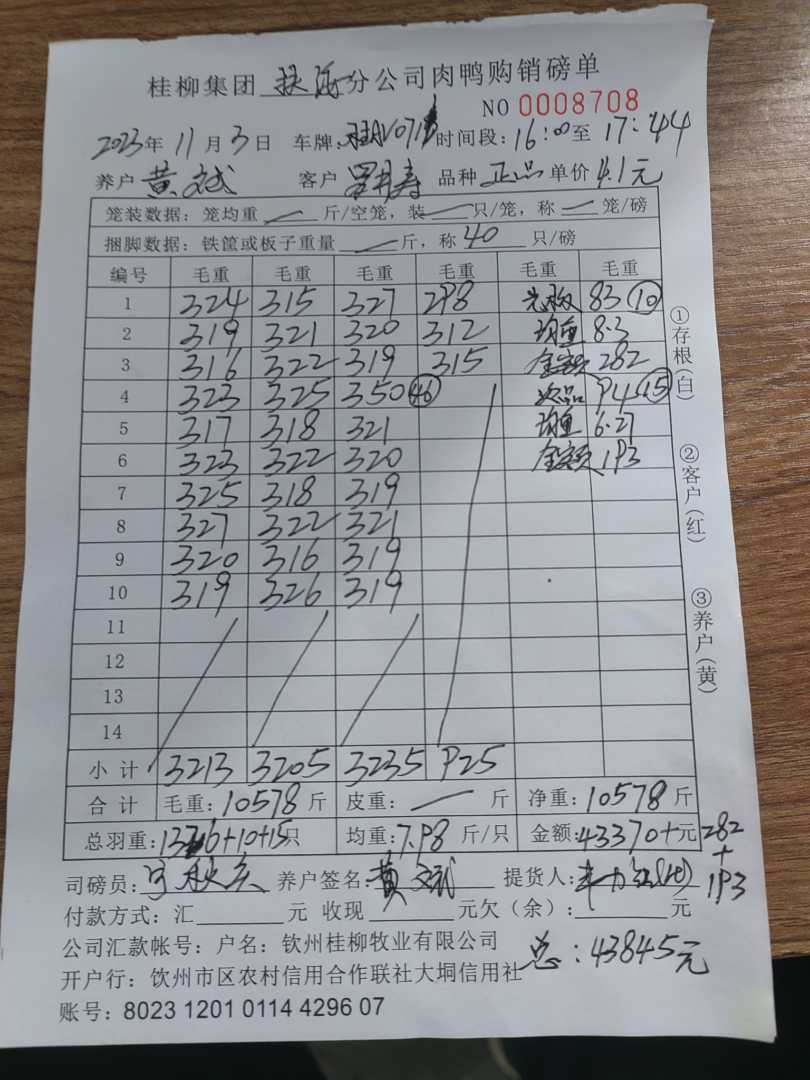 桂柳集团 扶海 分公司肉鸭购销磅单
NO 0008708
2023年 11月 3日 车牌: 时间段: 16:00至 17:44
养户 黄文斌 客户 品种 正品 单价 4.1元
笼装数据: 笼均重 — 斤/空笼, 装 — 只/笼, 称 — 笼/磅
捆脚数据: 铁筐或板子重量 — 斤, 称 40 只/磅
编号 毛重 毛重 毛重 毛重 毛重 毛重
1 324 315 327 298 83 ⑩
2 319 321 320 312 均重 8.3
3 316 322 319 315 金额 282
4 323 325 350 ㊻ 次品 94 ⑮
5 317 318 321 均重 6.27
6 323 322 320 金额 193
7 325 318 319
8 327 322 321
9 320 316 319
10 319 326 319
11
12
13
14
小计 3213 3205 3235 925
合计 毛重: 10578 斤 皮重: — 斤 净重: 10578 斤
总羽重: 1326+10+15只 均重: 7.98 斤/只 金额: 43370+元 282
+
193
司磅员: 养户签名: 黄文斌 提货人:
付款方式: 汇 元 收现 元欠(余): 元
公司汇款帐号: 户名: 钦州桂柳牧业有限公司
总: 43845元
开户行: 钦州市区农村信用合作联社大垌信用社
账号: 8023 1201 0114 4296 07
①存根(白)
②客户(红)
③养户(黄)